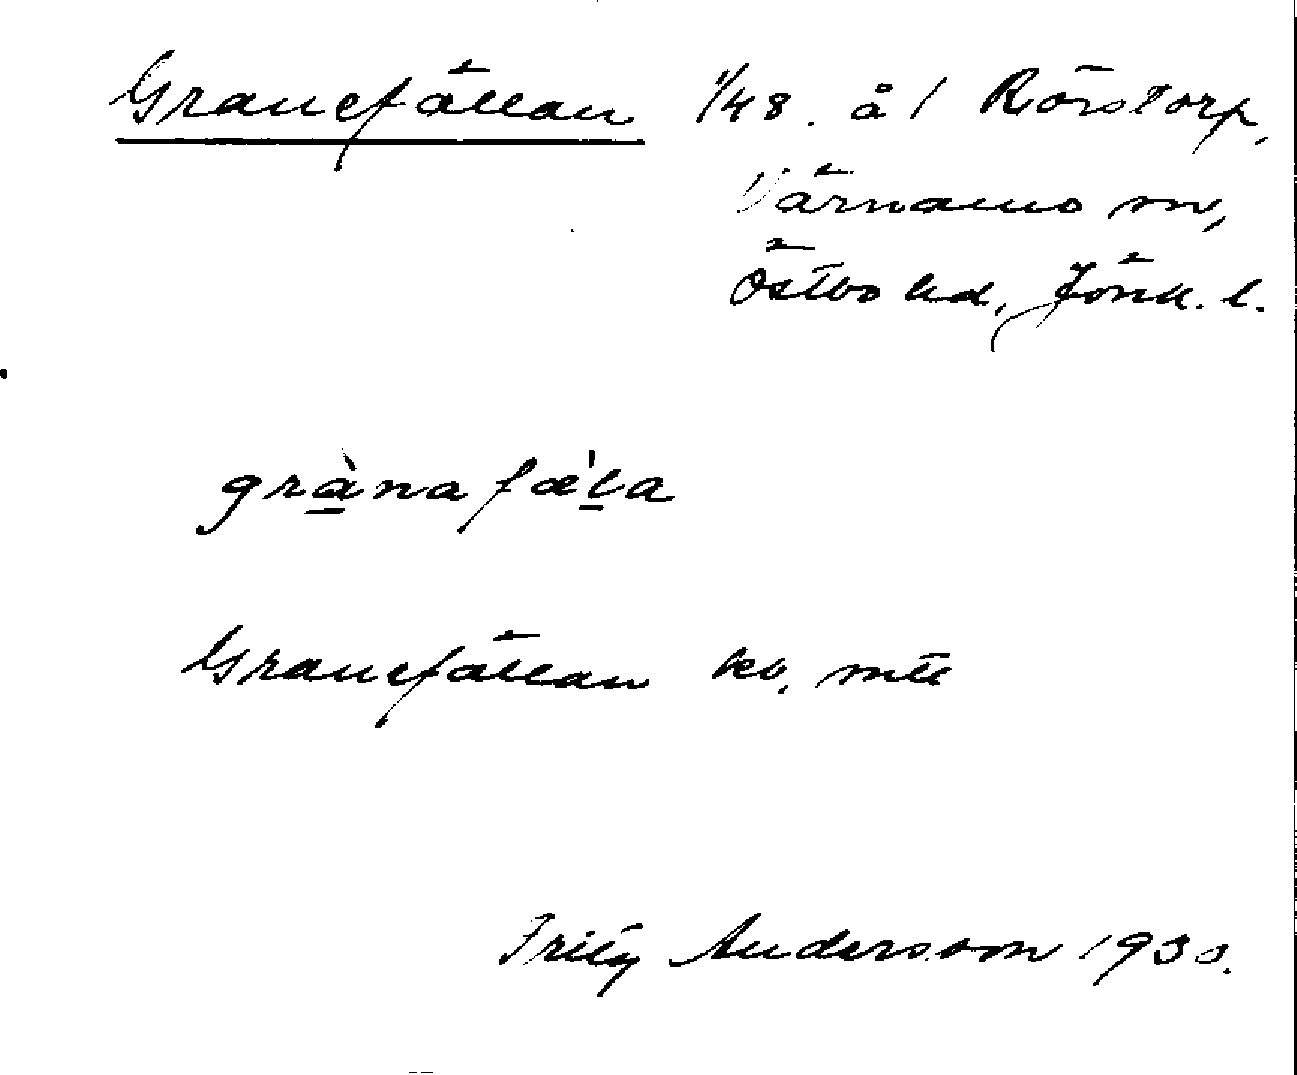 Granefällan 1/48. å 1 Rörstorp,
Värnamo sn,
Östbo hd, Jönk. l.
gràna fæ̀la
Granefällan kb, mtl
Fritz Andersson 1930.